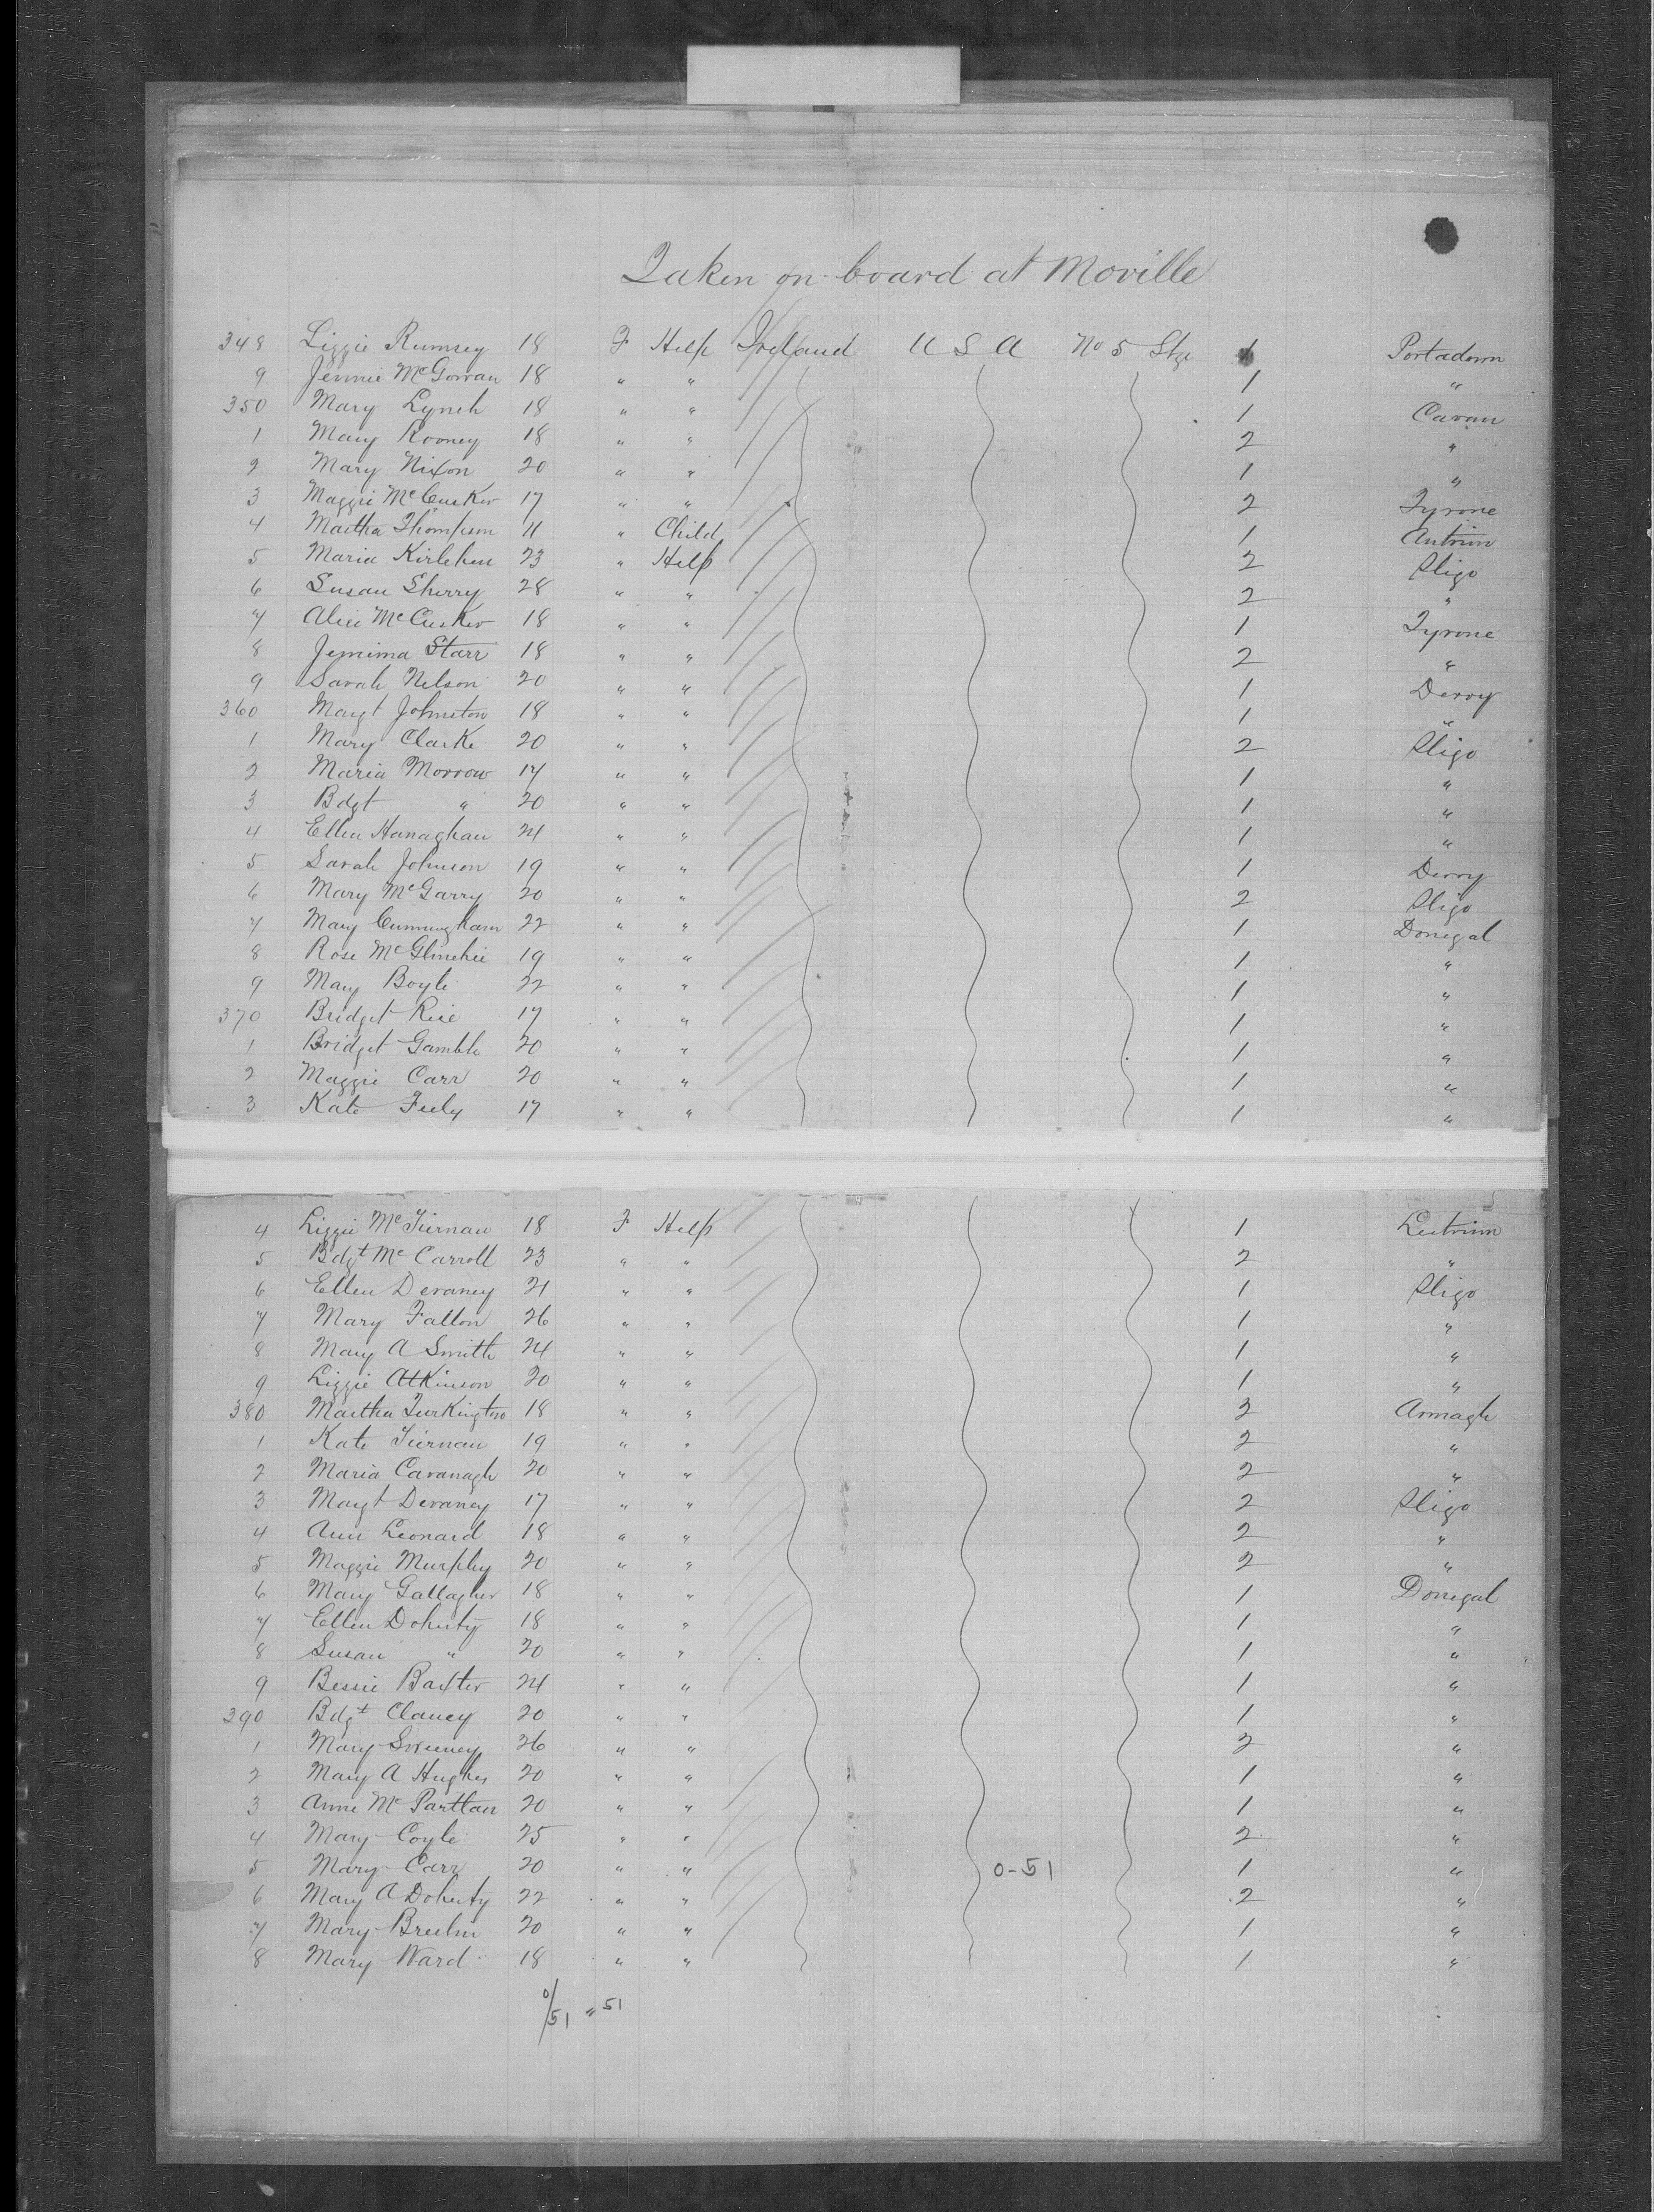 Taken on board at Moville
348 Lizzie Rumsey 18 F Help Ireland U S A No 5 Stge 1 Portadown
9 Jennie McGowan 18 " " 1 "
350 Mary Lynch 18 " " 1 Cavan
1 Mary Rooney 18 " " 2 "
2 Mary Nixon 20 " " 1 "
3 Maggie McCusker 17 " " 2 Tyrone
4 Martha Thompson 11 " Child 1 Antrim
5 Maria 23 " Help 2 Sligo
6 Susan Sherry 28 " " 2 "
7 Alice McCusker 18 " " 1 Tyrone
8 Jemima Starr 18 " " 2 "
9 Sarah Nelson 20 " " 1 Derry
360 Margt Johnston 18 " " 1 "
1 Mary Clarke 20 " " 2 Sligo
2 Maria Morrow 17 " " 1 "
3 Bdgt " 20 " " 1 "
4 Ellen Hanaghan 24 " " 1 "
5 Sarah Johnson 19 " " 1 Derry
6 Mary McGarry 20 " " 2 Sligo
7 Mary Cunningham 22 " " 1 Donegal
8 Rose McGlinchie 19 " " 1 "
9 Mary Boyle 22 " " 1 "
370 Bridget Rice 17 " " 1 "
1 Bridget Gamble 20 " " 1 "
2 Maggie Carr 20 " " 1 "
3 Kate Feely 17 " " 1 "
4 Lizzie McTiernan 18 F Help 1 Leitrim
5 Bdgt McCarroll 23 " " 2 "
6 Ellen Devaney 21 " " 1 Sligo
7 Mary Fallon 26 " " 1 "
8 Mary A Smith 24 " " 1 "
9 Lizzie Atkinson 20 " " 1 "
380 Martha Turkington 18 " " 2 Armagh
1 Kate Tiernan 19 " " 2 "
2 Maria Cavanagh 20 " " 2 "
3 Margt Devaney 17 " " 2 Sligo
4 Ann Leonard 18 " " 2 "
5 Maggie Murphy 20 " " 2 "
6 Mary Gallagher 18 " " 1 Donegal
7 Ellen Doherty 18 " " 1 "
8 Susan " 20 " " 1 "
9 Bessie Baxter 24 " " 1 "
390 Bdgt Clancy 20 " " 1 "
1 Mary Sweeney 26 " " 2 "
2 Mary A Hughes 20 " " 1 "
3 Anne McPartlan 20 " " 1 "
4 Mary Coyle 25 " " 2 "
5 Mary Carr 20 " " 0-51 1 "
6 Mary A Doherty 22 " " 2 "
7 Mary Breslin 20 " " 1 "
8 Mary Ward 18 " " 1 "
0/51 " 51